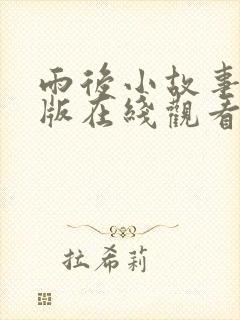 雨後小故事
版在綫觀看
拉希莉